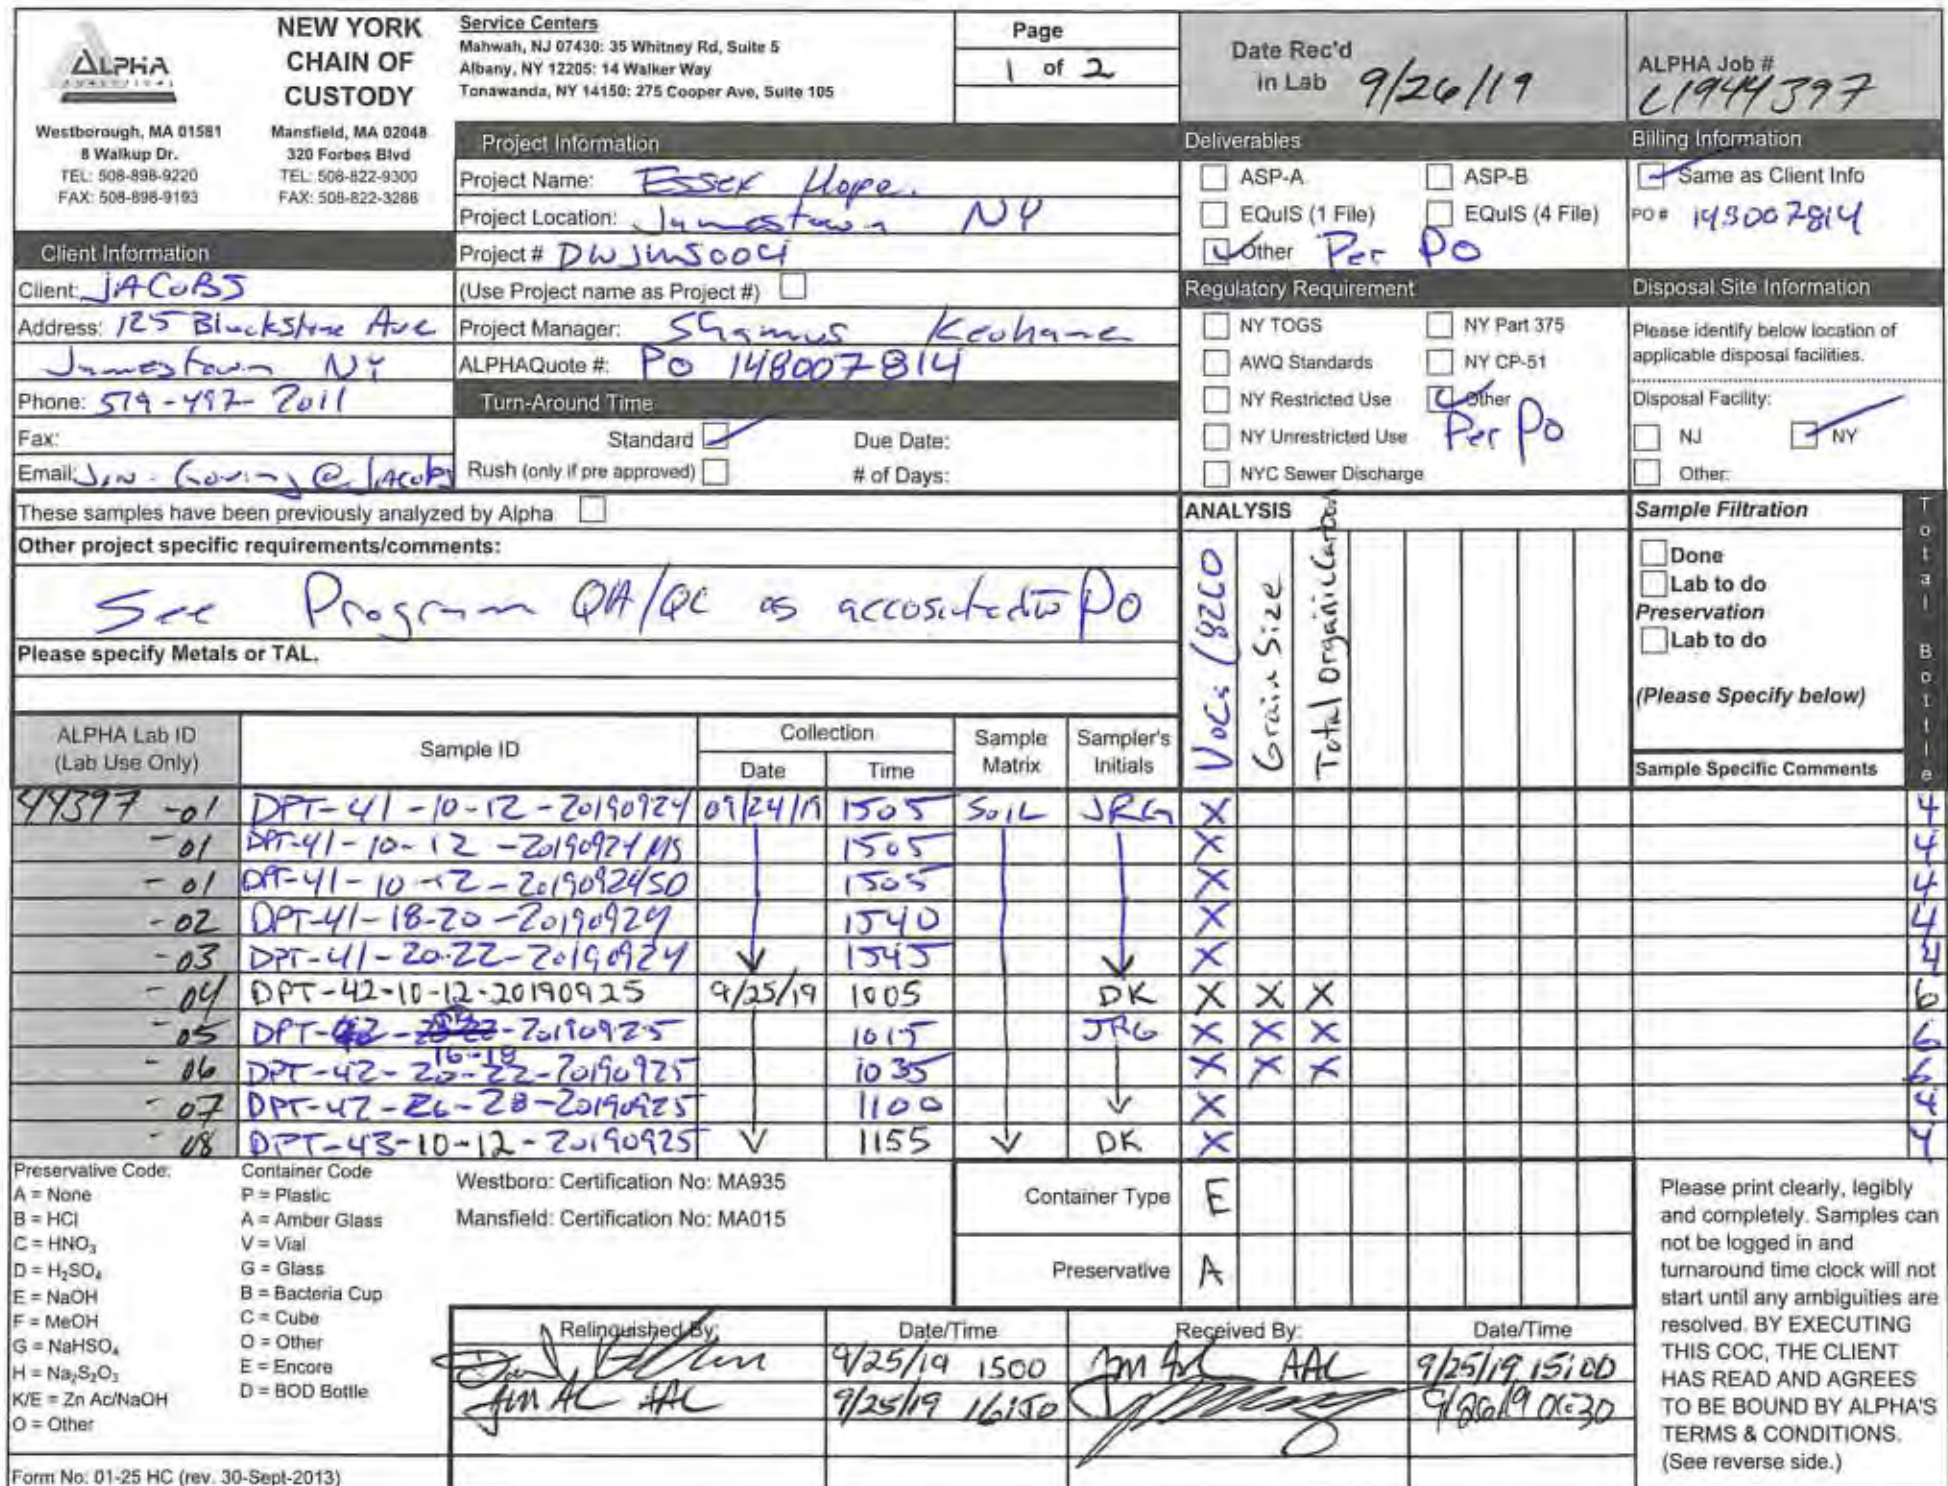 ALPHA
ANALYTICAL
NEW YORK
CHAIN OF
CUSTODY
Westborough, MA 01581
8 Walkup Dr.
TEL: 508-898-9220
FAX: 508-898-9193
Mansfield, MA 02048
320 Forbes Blvd
TEL: 508-822-9300
FAX: 508-822-3288
Service Centers
Mahwah, NJ 07430: 35 Whitney Rd, Suite 5
Albany, NY 12205: 14 Walker Way
Tonawanda, NY 14150: 275 Cooper Ave, Suite 105
Page
1 of 2
Date Rec'd
in Lab 9/26/19
ALPHA Job #
L1944397
Client Information
Client: JACOBS
Address: 125 Blackstone Ave
Jamestown NY
Phone: 579-492-2011
Fax:
Email: @ Jacobs
Project Information
Project Name: Essex Hope
Project Location: Jamestown NY
Project #
(Use Project name as Project #)
Project Manager: Shamus Keohane
ALPHAQuote #: PO 148007814
Turn-Around Time
Standard
Due Date:
Rush (only if pre approved)
# of Days:
Deliverables
ASP-A ASP-B
EQuIS (1 File) EQuIS (4 File)
Other Per PO
Regulatory Requirement
NY TOGS NY Part 375
AWQ Standards NY CP-51
NY Restricted Use Other
NY Unrestricted Use Per PO
NYC Sewer Discharge
Billing Information
Same as Client Info
PO # 148007814
Disposal Site Information
Please identify below location of
applicable disposal facilities.
Disposal Facility:
NJ NY
Other:
These samples have been previously analyzed by Alpha
Other project specific requirements/comments:
See Program QA/QC as accosiated to PO
Please specify Metals or TAL.
ANALYSIS
VOCs (8260
Grain Size
Total Organic Carbon
Sample Filtration
Done
Lab to do
Preservation
Lab to do
(Please Specify below)
Total Bottle
ALPHA Lab ID
(Lab Use Only)
Sample ID
Collection
Date Time
Sample
Matrix
Sampler's
Initials
Sample Specific Comments
44397 -01 DPT-41-10-12-20190924 09/24/19 1505 Soil JRG X 4
-01 DPT-41-10-12-20190924MS 1505 X 4
-01 DPT-41-10-12-20190924SD 1505 X 4
-02 DPT-41-18-20-20190924 1540 X 4
-03 DPT-41-20-22-20190924 1545 X 4
-04 DPT-42-10-12-20190925 9/25/19 1005 DK X X X 6
-05 DPT-42-20190925 1015 JRG X X X 6
16-18
-06 DPT-42-20-22-20190925 1035 X X X 6
-07 DPT-42-26-28-20190925 1100 X 4
-08 DPT-43-10-12-20190925 1155 DK X 4
Preservative Code:
A = None
B = HCl
C = HNO₃
D = H₂SO₄
E = NaOH
F = MeOH
G = NaHSO₄
H = Na₂S₂O₃
K/E = Zn Ac/NaOH
O = Other
Container Code
P = Plastic
A = Amber Glass
V = Vial
G = Glass
B = Bacteria Cup
C = Cube
O = Other
E = Encore
D = BOD Bottle
Westboro: Certification No: MA935
Mansfield: Certification No: MA015
Container Type E
Preservative A
Relinquished By: Date/Time Received By: Date/Time
9/25/19 1500 AAL 9/25/19 15:00
AAL 9/25/19 16:50 9/26/19
Please print clearly, legibly
and completely. Samples can
not be logged in and
turnaround time clock will not
start until any ambiguities are
resolved. BY EXECUTING
THIS COC, THE CLIENT
HAS READ AND AGREES
TO BE BOUND BY ALPHA'S
TERMS & CONDITIONS.
(See reverse side.)
Form No: 01-25 HC (rev. 30-Sept-2013)